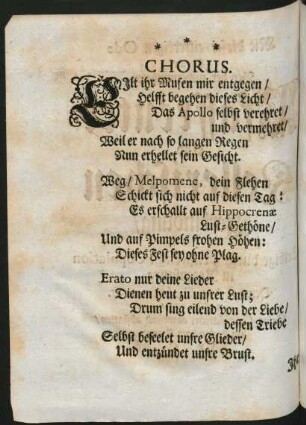 * * * * *
CHORUS.
Eilt ihr Musen mir entgegen /
Helfft begehen dieses Licht /
Das Apollo selbst verehret /
und vermehret /
Weil er nach so langen Regen
Nun erhellet sein Gesicht.
Weg / Melpomene, dein Flehen
Schickt sich nicht auf diesen Tag:
Es erschallt auf Hippocrenæ
Lust-Gethöne /
Und auf Pimpels frohen Höhen:
Dieses Fest sey ohne Plag.
Erato nur deine Lieder
Dienen heut zu unsrer Lust;
Drum sing eilend von der Liebe /
dessen Triebe
Selbst beseelet unsre Glieder /
Und entzündet unsre Brust.